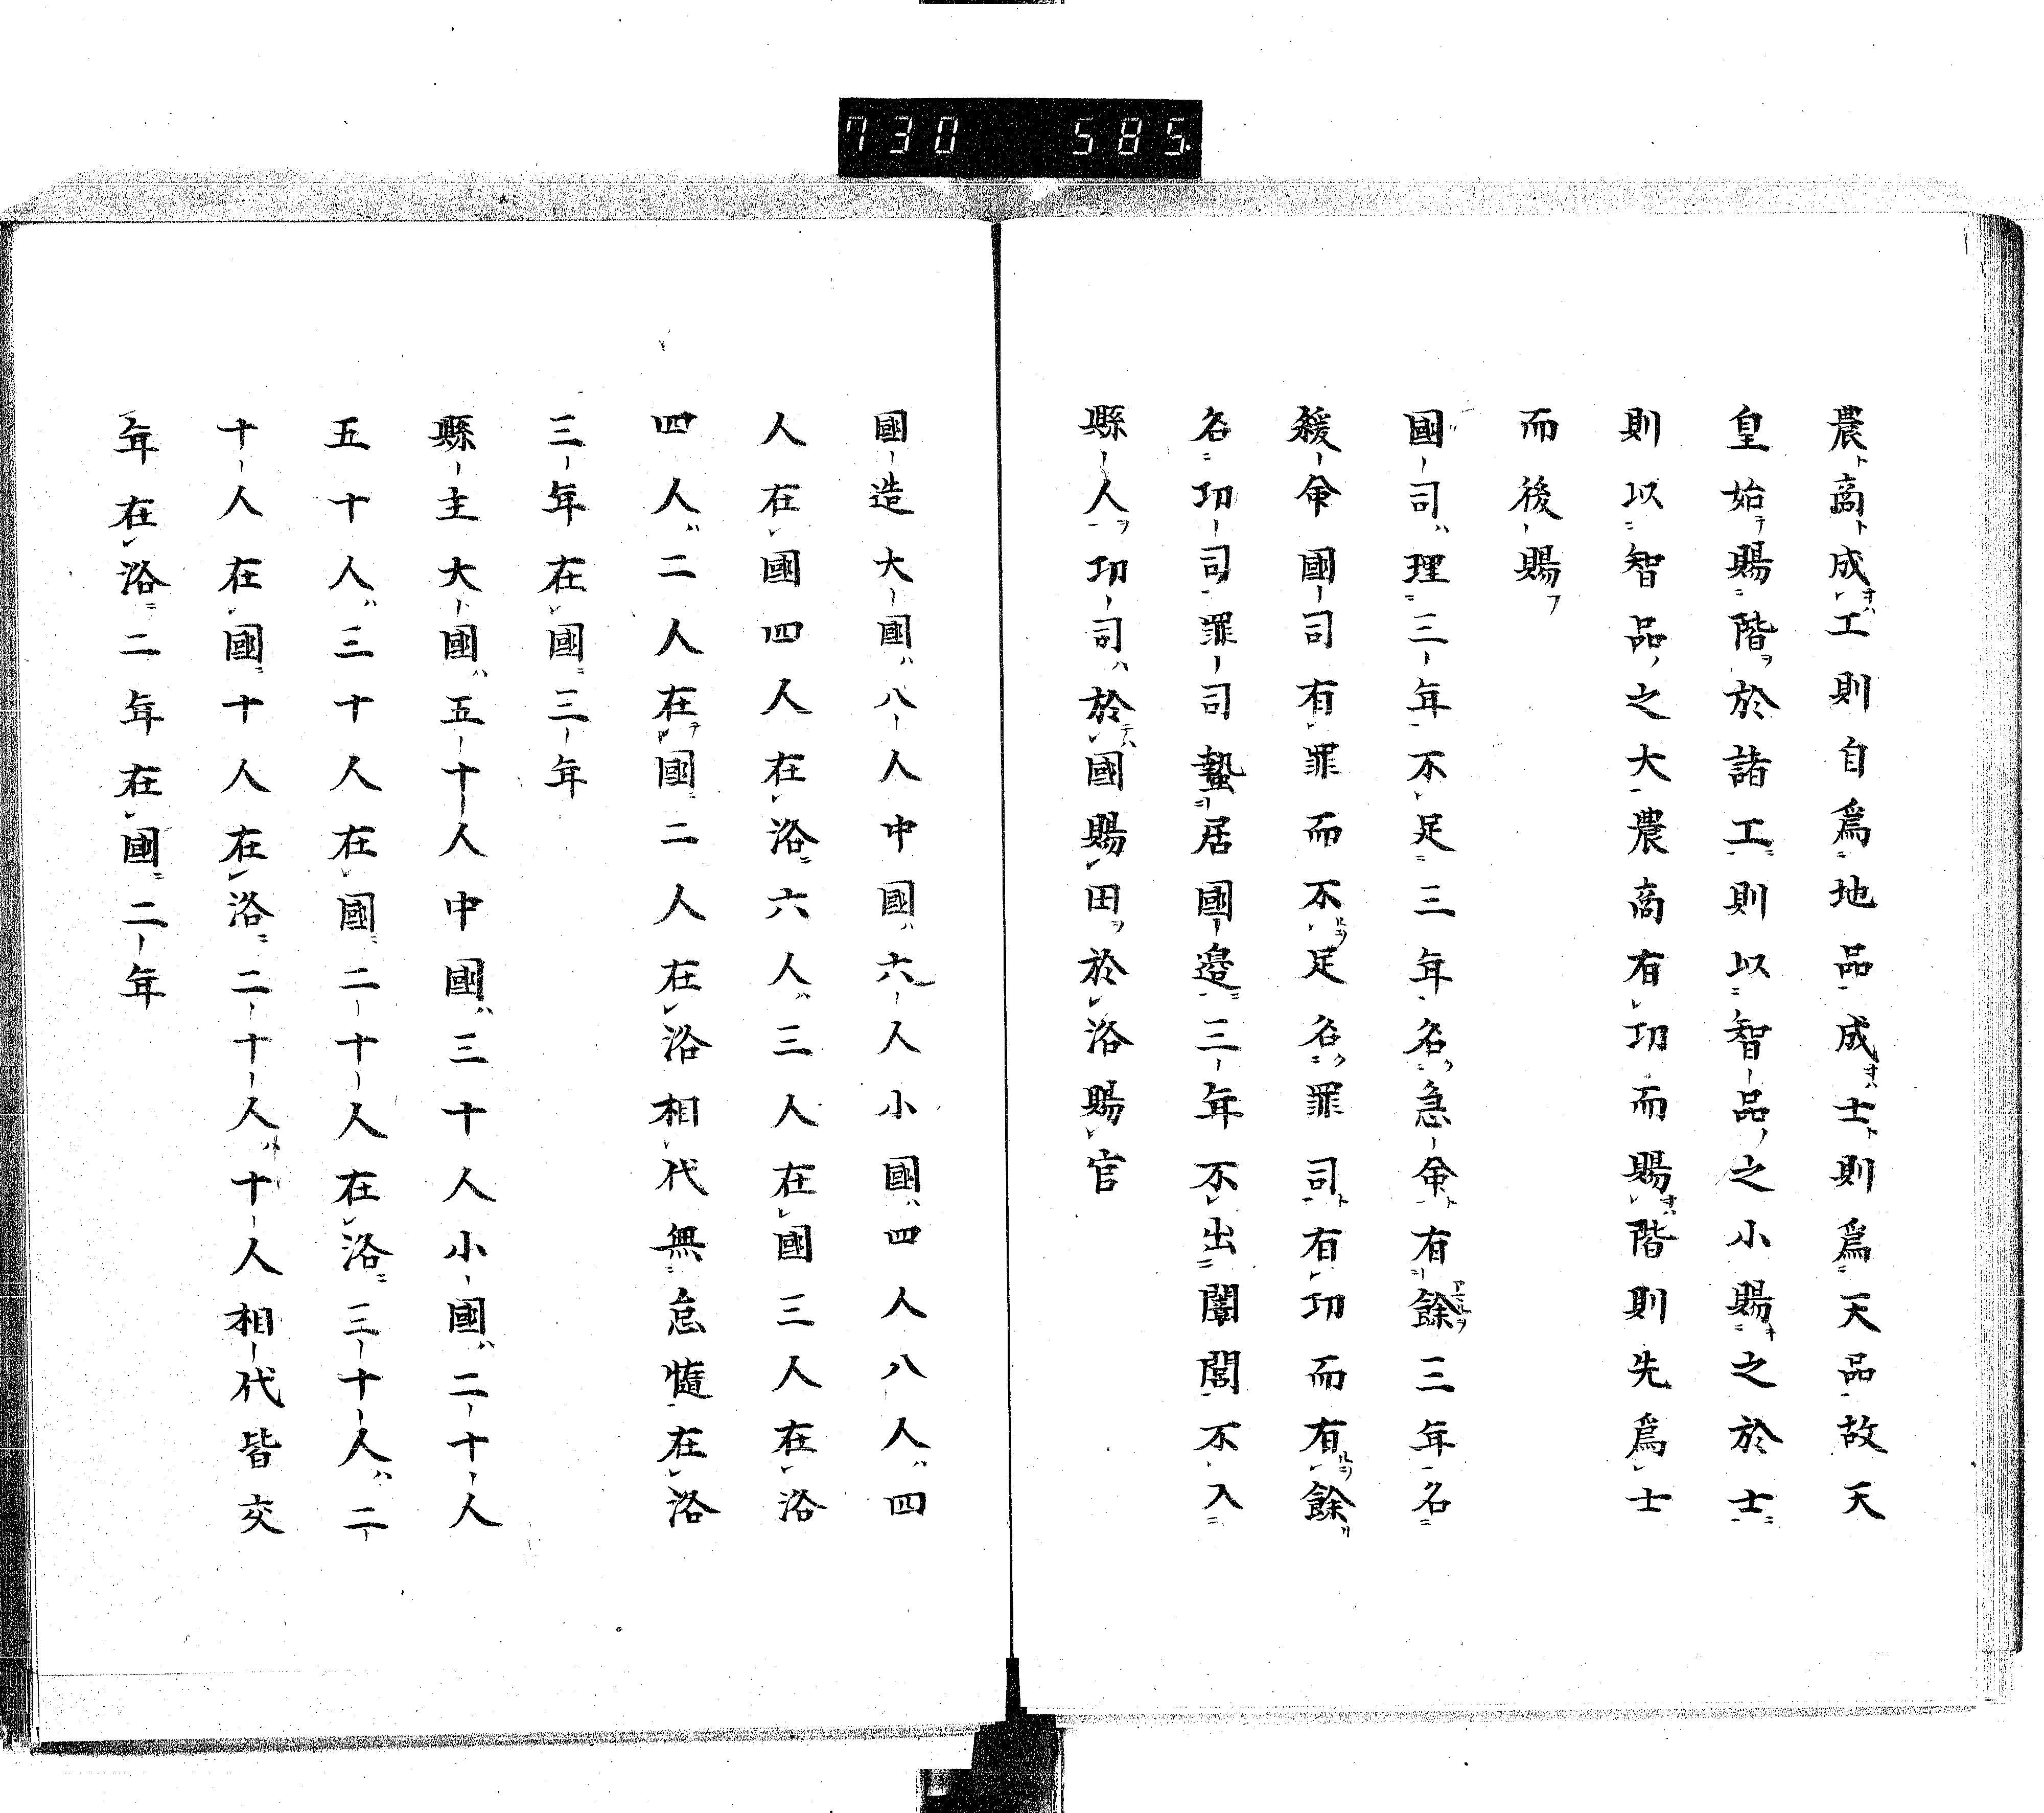 730 585
農商成工則自爲地品成士則爲天品故天
皇始賜階於諸工則以智品之小賜之於士
則以智品之大農商有功而賜階則先爲士
而後賜
國司理三年不足三年名急命有餘三年名
緩命國司有罪而不足名罪司有功而有餘
名功司罪司蟄居國邊三年不出闉閭不入
縣人功司於國賜田於洛賜官
國造大國八人中國六人小國四人八人四
人在國四人在洛六人三人在國三人在洛
四人二人在國二人在洛相代無怠惰在洛
三年在國三年
縣主大國五十人中國三十人小國二十人
五十人三十人在國二十人在洛三十人二
十人在國十人在洛二十人十人相代皆交
年在洛二年在國二年